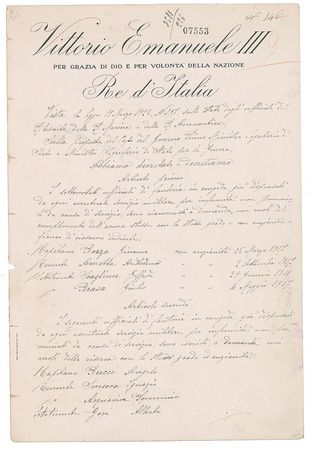 07553
Vittorio Emanuele III
PER GRAZIA DI DIO E PER VOLONTÀ DELLA NAZIONE
Re d'Italia
Vista la legge 11 Marzo 1926, N. 397 sullo Stato degli ufficiali del
R. Esercito, della R. Marina e della R. Aeronautica;
Sulla proposta del Capo del Governo Primo Ministro Segretario di
Stato e Ministro Segretario di Stato per la Guerra;
Abbiamo decretato e decretiamo
Articolo primo
I sottonotati ufficiali di fanteria in congedo, già dispensati
da ogni eventuale servizio militare per infermità non provenienti
da cause di servizio, sono riammessi a domanda, nei ruoli del
complemento dell'arma stessa con lo stesso grado e con anzianità a
fianco di ciascuno indicata:
Capitano Giacomo con anzianità 1917
Tenente Aristodemo 2 Settembre 1917
Sottotenente Scaglione 29 Gennaio 1918
" Brasa Giulio 4 Maggio 1917
Articolo secondo
I seguenti ufficiali di fanteria in congedo, già dispensati
da ogni eventuale servizio militare per infermità non pro-
venienti da cause di servizio, sono iscritti a domanda, nei
ruoli della riserva con lo stesso grado ed anzianità:
Capitano Bucci Angelo
Tenente Ignazio
" Acquaviva Domenico
Sottotenente Gori Alberto